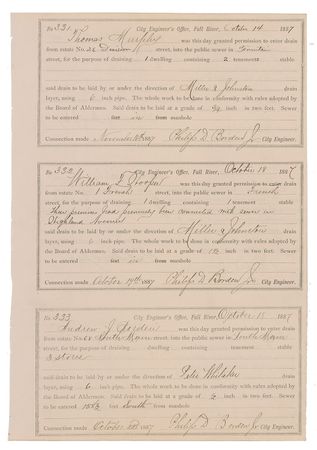 No 331 City Engineer's Office, Fall River, October 14 1887
Thomas Murphy was this day granted permission to enter drain
from estate No. street, into the public sewer in
street, for the purpose of draining 1 dwelling containing 2 tenement stable
said drain to be laid by or under the direction of Miller & Johnston drain
layer, using 6 inch pipe. The whole work to be done in conformity with rules adopted by
the Board of Aldermen. Said drain to be laid at a grade of in two feet. Sewer
to be entered feet from manhole
Connection made November 1887 Philip D Borden Jr City Engineer.
No 332 City Engineer's Office, Fall River, October 18 1887
William was this day granted permission to enter drain
from estate No. 1 French street, into the public sewer in French
street, for the purpose of draining 1 dwelling containing 1 tenement stable
These premises had previously been connected with sewer in
Highland Avenue
said drain to be laid by or under the direction of Miller & Johnston drain
layer, using 6 inch pipe. The whole work to be done in conformity with rules adopted by
the Board of Aldermen. Said drain to be laid at a grade of in two feet. Sewer
to be entered feet from manhole
Connection made October 19th 1887 Philip D Borden Jr City Engineer.
No 333 City Engineer's Office, Fall River, October 18 1887
Andrew J Borden was this day granted permission to enter drain
from estate No. South Main street, into the public sewer in South Main
street, for the purpose of draining dwelling containing tenement stable
3 stores
said drain to be laid by or under the direction of Whitaker drain
layer, using 6 inch pipe. The whole work to be done in conformity with rules adopted by
the Board of Aldermen. Said drain to be laid at a grade of in two feet. Sewer
to be entered feet South from manhole
Connection made October 1887 Philip D Borden Jr City Engineer.